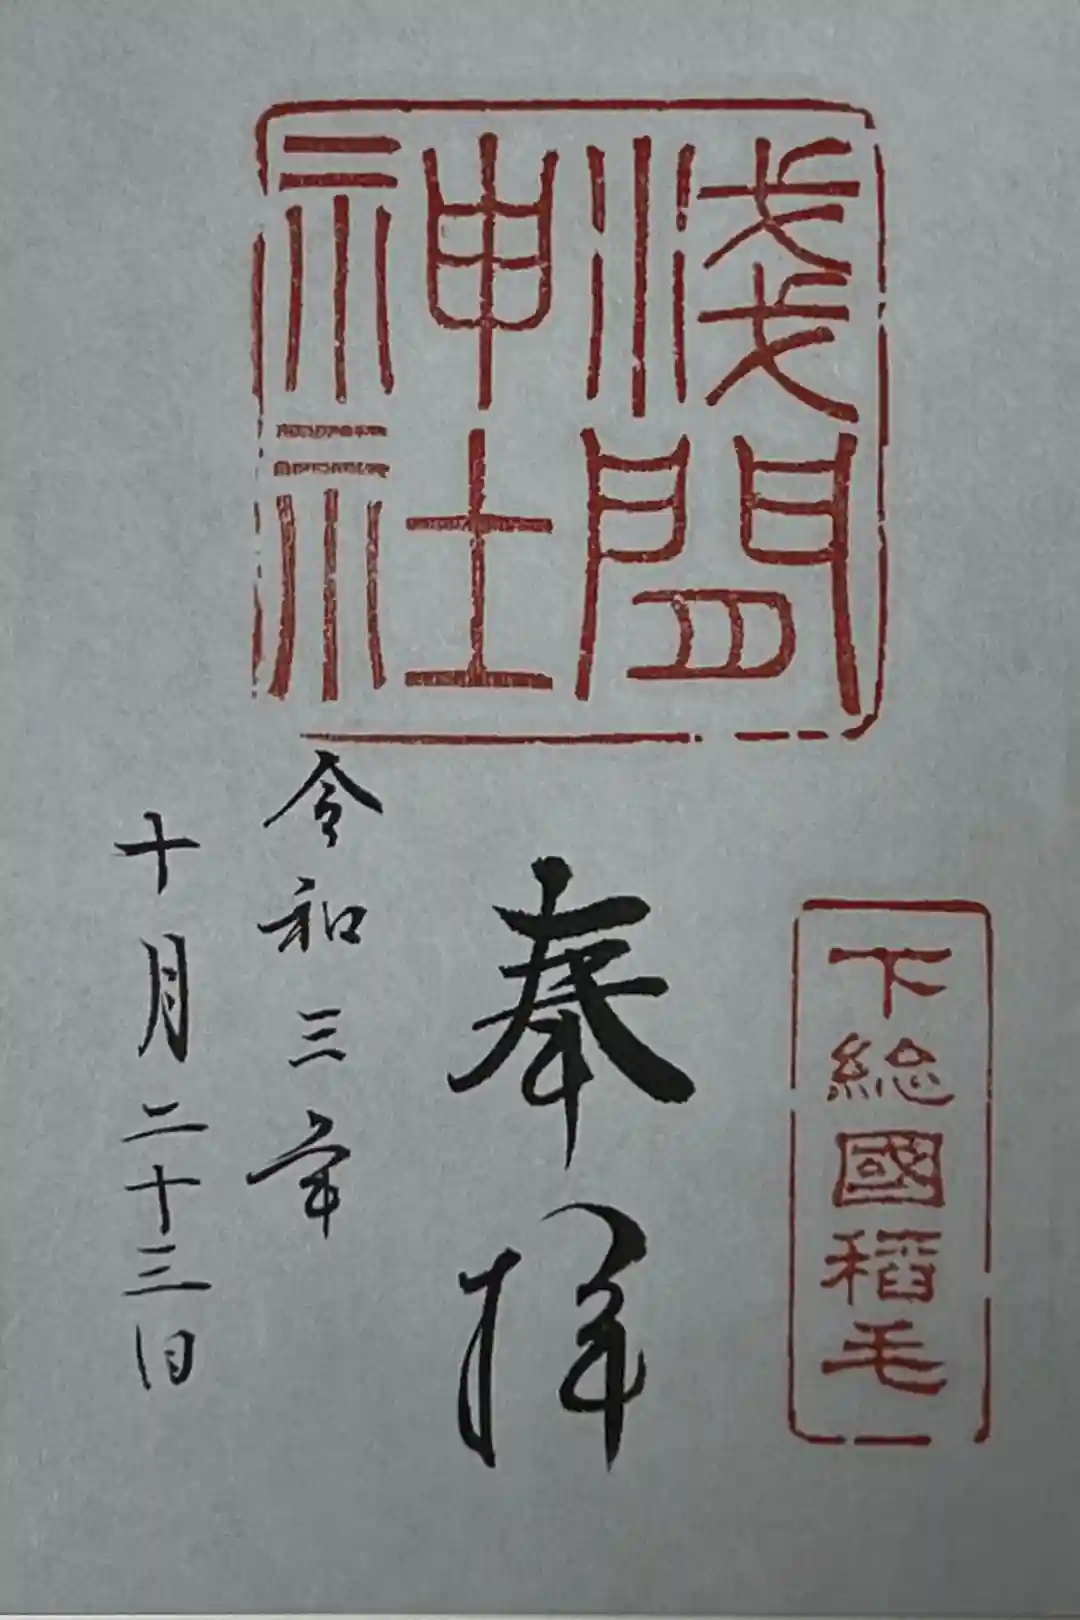 淺間
神社
下総國稻毛
奉拝
令和三年
十月二十三日